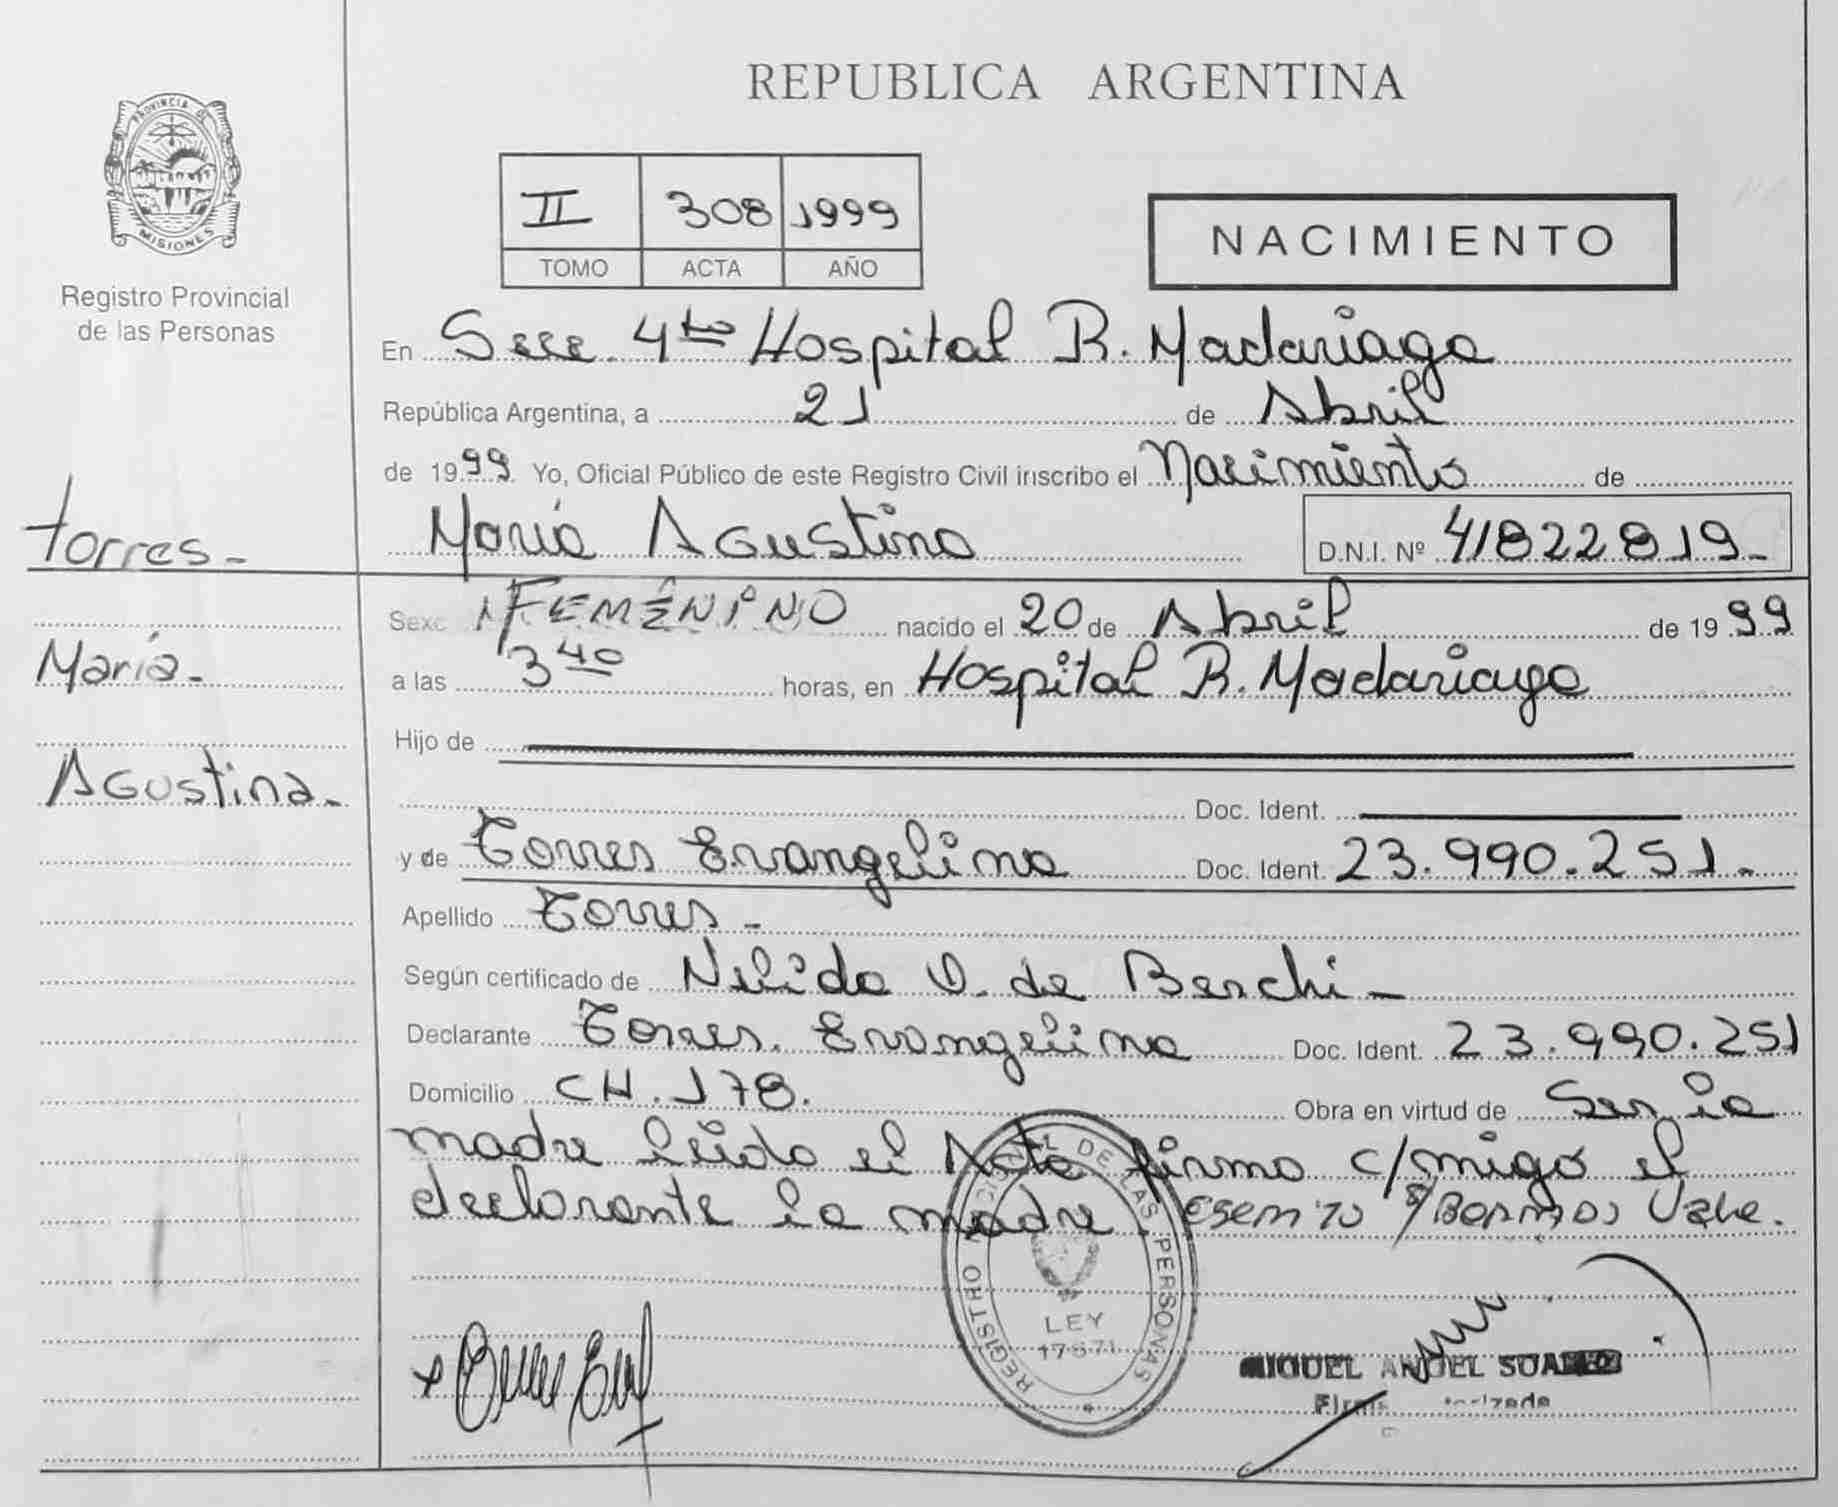 REPUBLICA ARGENTINA
PROVINCIA DE
MISIONES
Registro Provincial
de las Personas
II 308 1999
TOMO ACTA AÑO
NACIMIENTO
En Secc. 4to Hospital R. Madariaga
República Argentina, a 21 de Abril
de 1999 Yo, Oficial Público de este Registro Civil inscribo el Nacimiento de
María Agustina D.N.I. Nº 41822819-
Torres-
María-
Agustina-
Sexo FEMENINO nacido el 20 de Abril de 1999
a las 3 40 horas, en Hospital R. Madariaga
Hijo de
Doc. Ident.
y de Torres Evangelina Doc. Ident. 23.990.251.-
Apellido Torres-
Según certificado de Nelida O. de Berchi-
Declarante Torres. Evangelina Doc. Ident. 23.990.251
Domicilio CH. 178. Obra en virtud de Ser la
madre leído el Acta firma c/migo el
declarante la madre.
REGISTRO NACIONAL DE LAS PERSONAS
LEY
17671
MIGUEL ANGEL SUAREZ